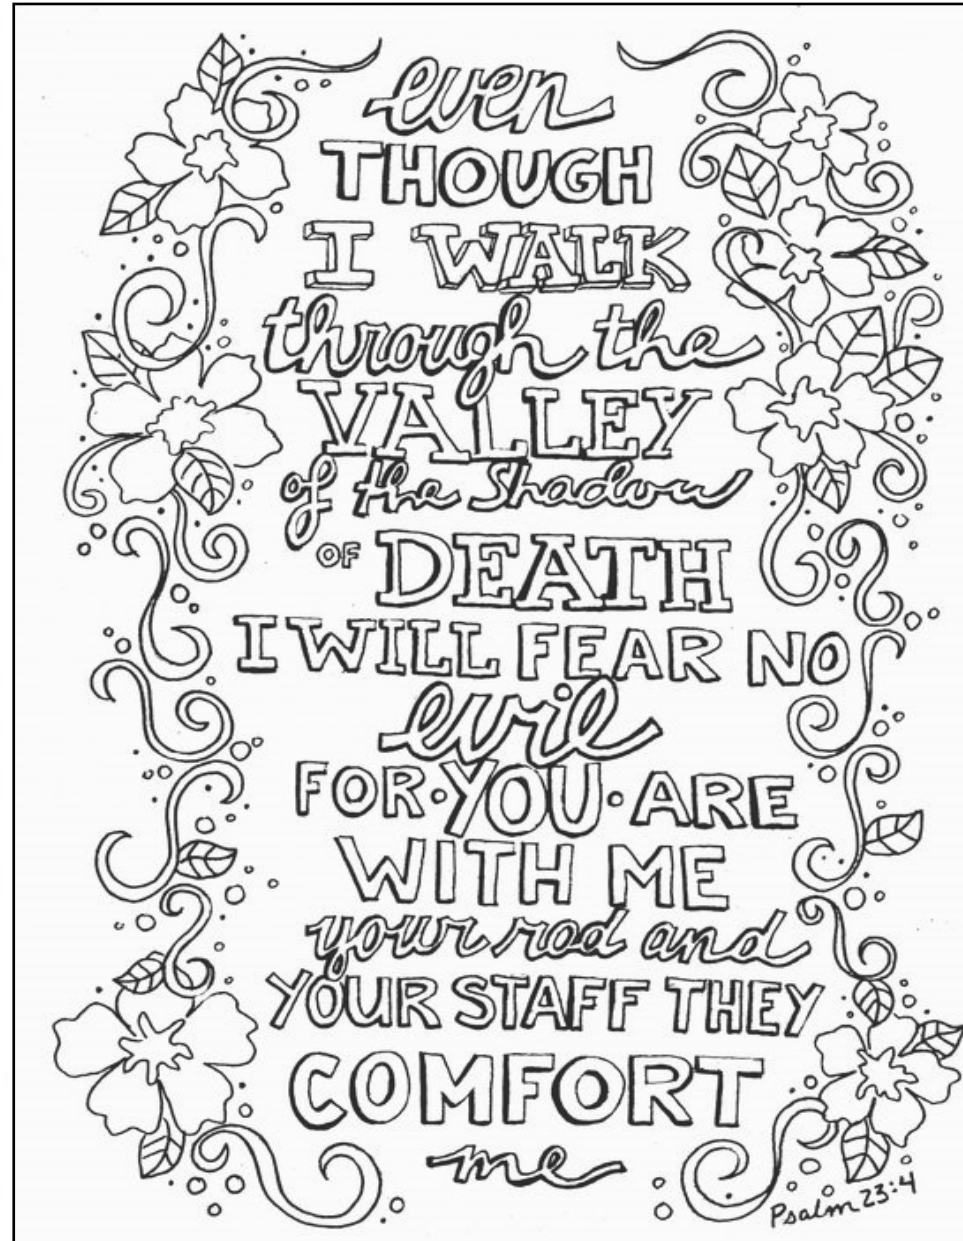 even
THOUGH
I WALK
through the
VALLEY
of the Shadow
OF DEATH
I WILL FEAR NO
evil
FOR·YOU·ARE
WITH ME
your rod and
YOUR STAFF THEY
COMFORT
me
Psalm 23:4